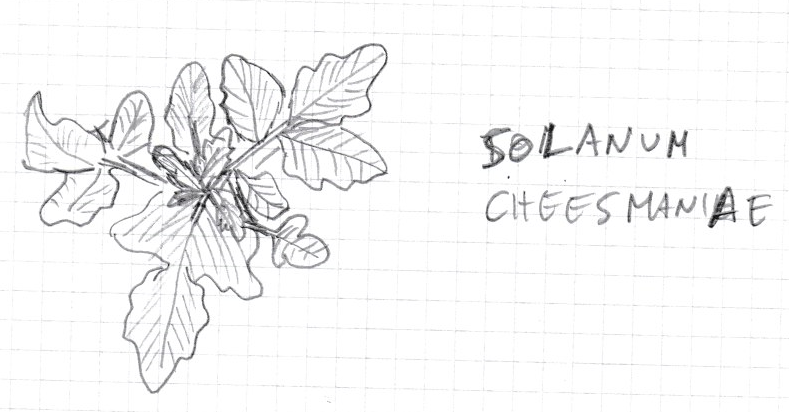 SOLANUM
CHEESMANIAE